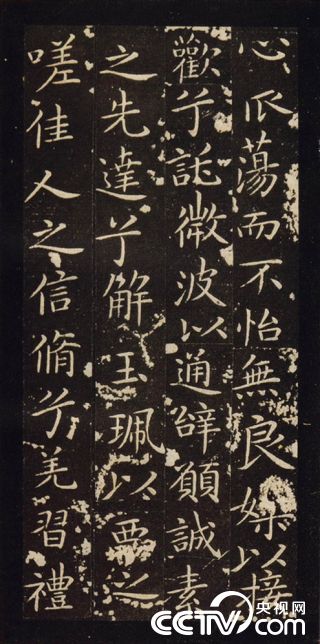 心振蕩而不怡無良媒以接
歡兮託微波以通辭願誠素
之先達兮解玉珮以要之
嗟佳人之信脩兮羌習禮
央视网
CCTV.com